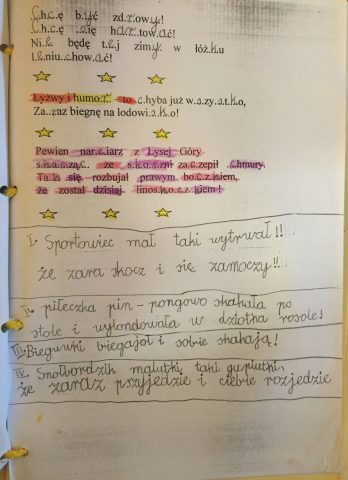 Chcę być zdrowy!
Chcę się hartować!
Nie będę tej zimy w łóżku
leniuchować!
Łyżwy i humor – to chyba już wszystko,
Zaraz biegnę na lodowisko!
Pewien narciarz z Łysej Góry
skacząc ze skoczni zaczepił chmury.
Tak się rozbujał prawym boczkiem,
że został dzisiaj linoskoczkiem!
I. Sportowiec mał taki wytrwał!!
że zara skocz i się zamoczy!!
II. piłeczka pin-pongowo skakała po
stole i wylondowała w dziotka rosole!
III. Bieguwki biegajoł i sobie skakają!
IV. Snołbordzik malutki, taki guplutki,
że zaraz przyjedzie i ciebie rozjedzie